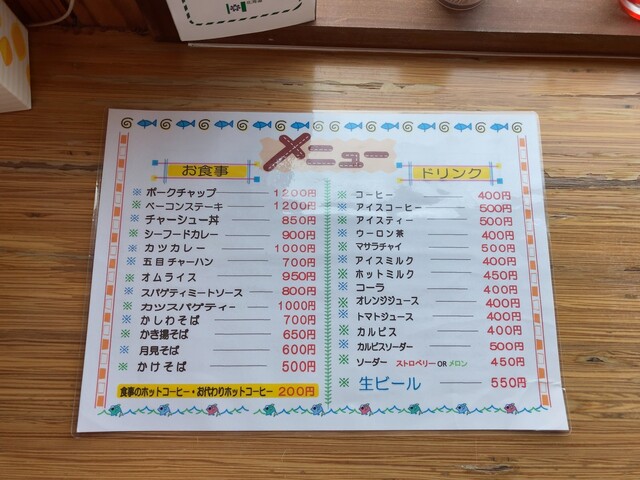 メニュー
お食事
※ ポークチャップ 1200円
※ ベーコンステーキ 1200円
※ チャーシュー丼 850円
※ シーフードカレー 900円
※ カツカレー 1000円
※ 五目チャーハン 700円
※ オムライス 950円
※ スパゲティミートソース 800円
※ カツスパゲティー 1000円
※ かしわそば 700円
※ かき揚そば 650円
※ 月見そば 600円
※ かけそば 500円
食事のホットコーヒー・お代わりホットコーヒー 200円
ドリンク
※ コーヒー 400円
※ アイスコーヒー 500円
※ アイスティー 500円
※ ウーロン茶 400円
※ マサラチャイ 500円
※ アイスミルク 400円
※ ホットミルク 450円
※ コーラ 400円
※ オレンジジュース 400円
※ トマトジュース 400円
※ カルピス 400円
※ カルピスソーダー 500円
※ ソーダー ストロベリー OR メロン 450円
※ 生ビール 550円